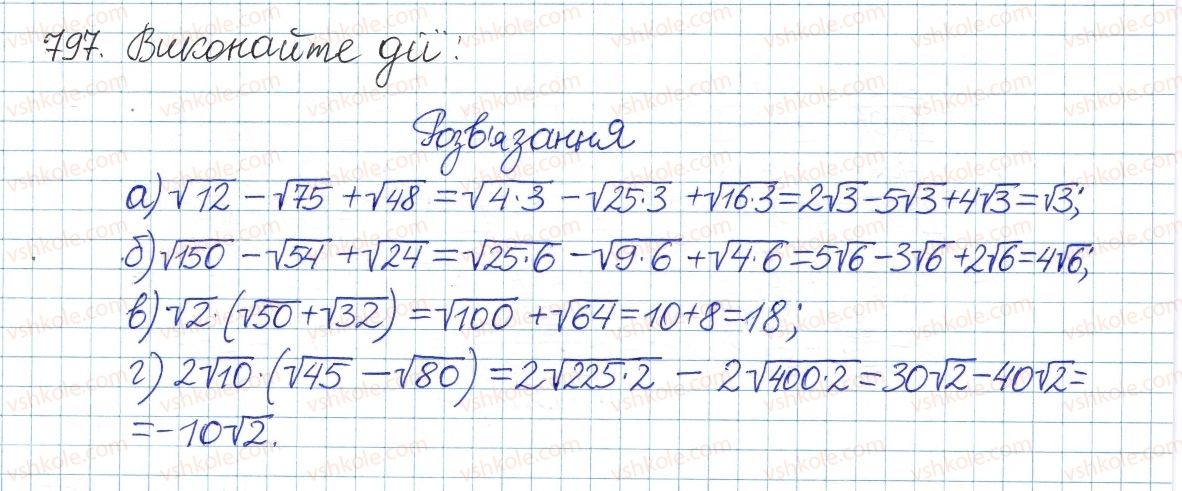 797. Виконайте дії:
Розв'язання
а) √12 − √75 + √48 = √4·3 − √25·3 + √16·3 = 2√3 − 5√3 + 4√3 = √3;
б) √150 − √54 + √24 = √25·6 − √9·6 + √4·6 = 5√6 − 3√6 + 2√6 = 4√6;
в) √2·(√50 + √32) = √100 + √64 = 10 + 8 = 18;
г) 2√10·(√45 − √80) = 2√225·2 − 2√400·2 = 30√2 − 40√2 =
= −10√2.